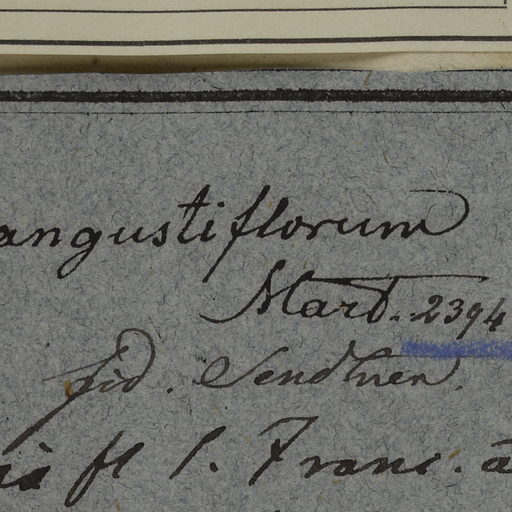 angustiflorum
Mart. 2394
fid. Sendtner.
is fl S. Franc. a